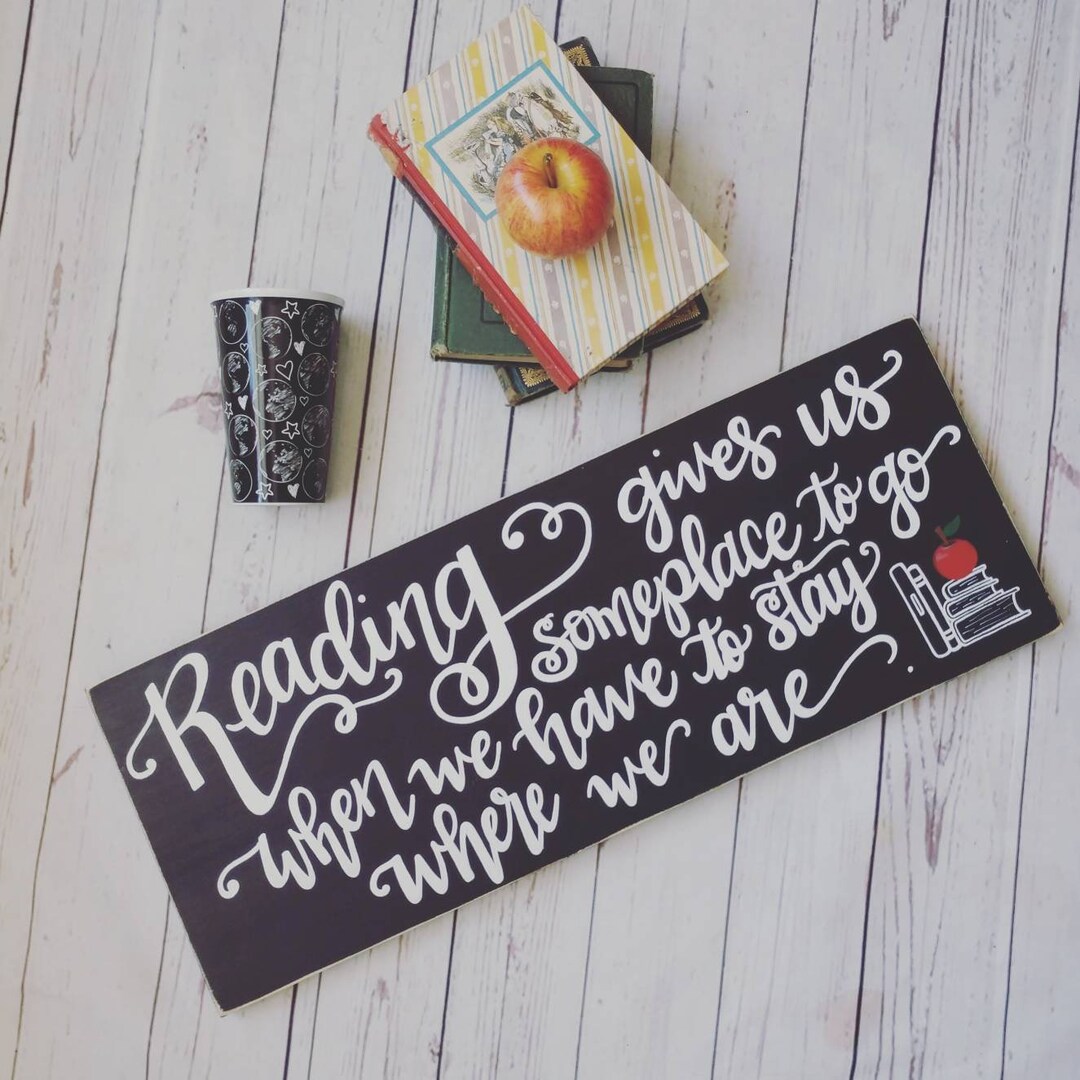 Reading gives us
someplace to go
when we have to stay
where we are.